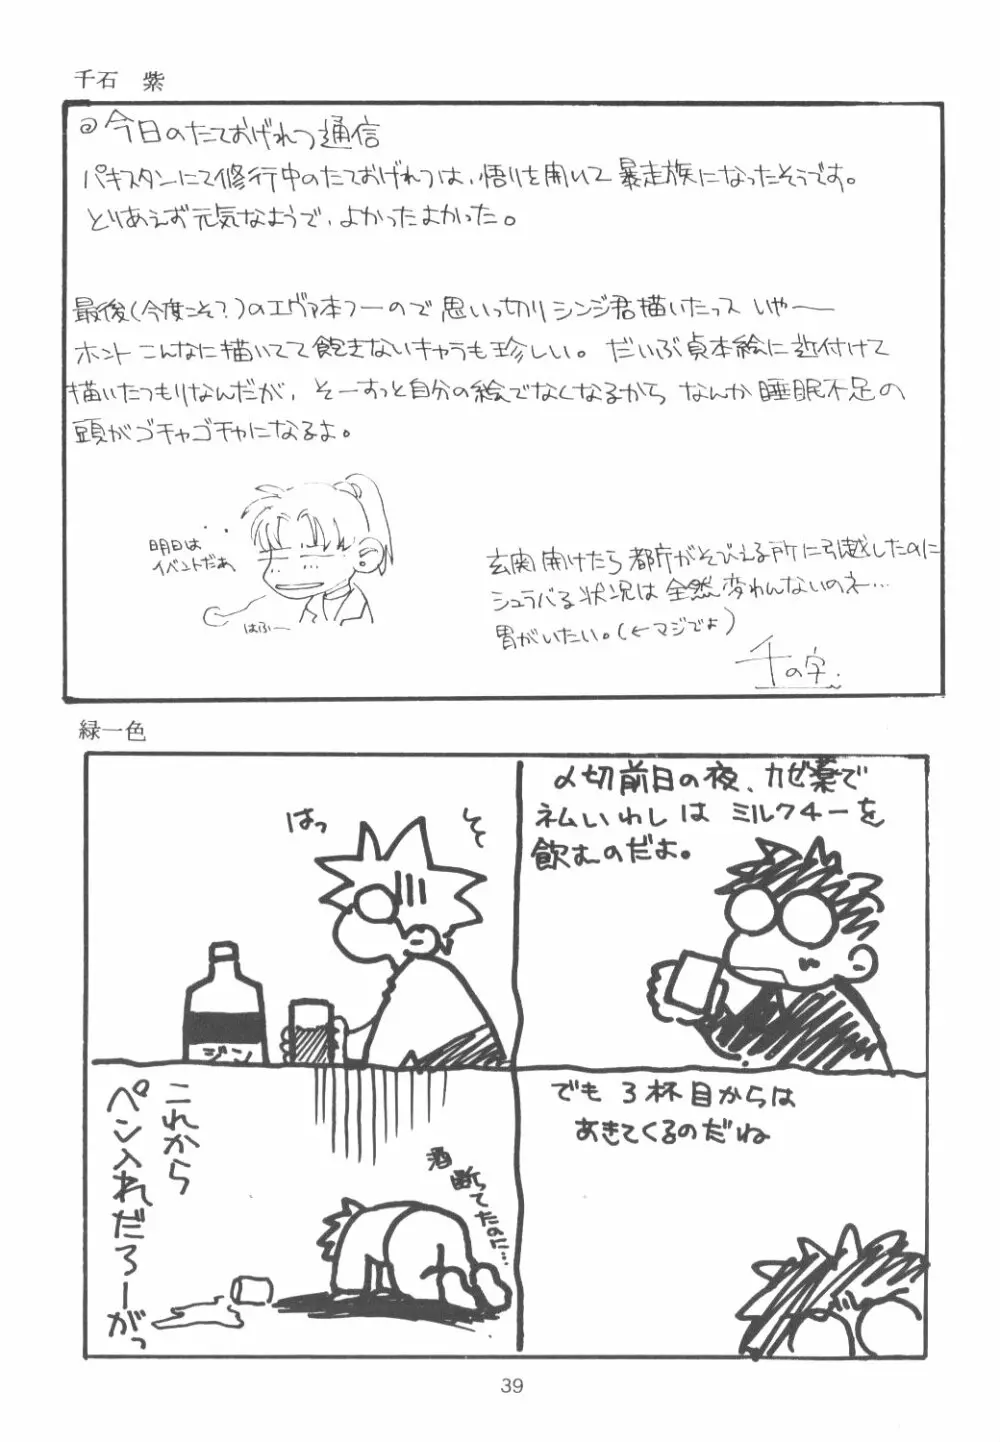 千石　紫
◎今日のたておげれつ通信
パキスタンにて修行中のたておげれつは、悟りを開いて暴走族になったそうです。
とりあえず元気なようで、よかったよかった。
最後(今度こそ?)のエヴァ本フーので思いっ切りシンジ君描いたっス いやー
ホント こんなに描いてて飽きないキャラも珍しい。だいぶ貞本絵に近付けて
描いたつもりなんだが、そーすっと自分の絵でなくなるから なんか睡眠不足の
頭がゴチャゴチャになるよ。
明日は
イベントだぁ
はふー
玄関開けたら都庁がそびえる所に引越したのに
シュラバる状況は全然変わんないのネ…
胃がいたい。(←マジでよ)
千の字
緑一色
〆切前日の夜、カゼ薬で
ネムいわしはミルクチーを
飲むのだよ。
でも3杯目からは
あきてくるのだね
そ
はっ
ジン
酒
断ってたのに…
これから
ペン入れだろーがっ
39